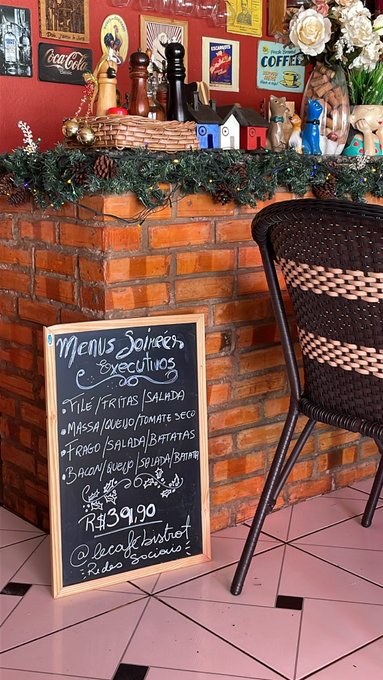 Coca-Cola
Classic
COFFEE
Menus Soirées
Executivos
• FILÉ/FRITAS/SALADA
• MASSA/QUEIJO/TOMATE SECO
• FRAGO/SALADA/BATATAS
• BACON/QUEIJO/SALADA/BATATA
R$39,90
@lecafebistrot
Redes Sociais